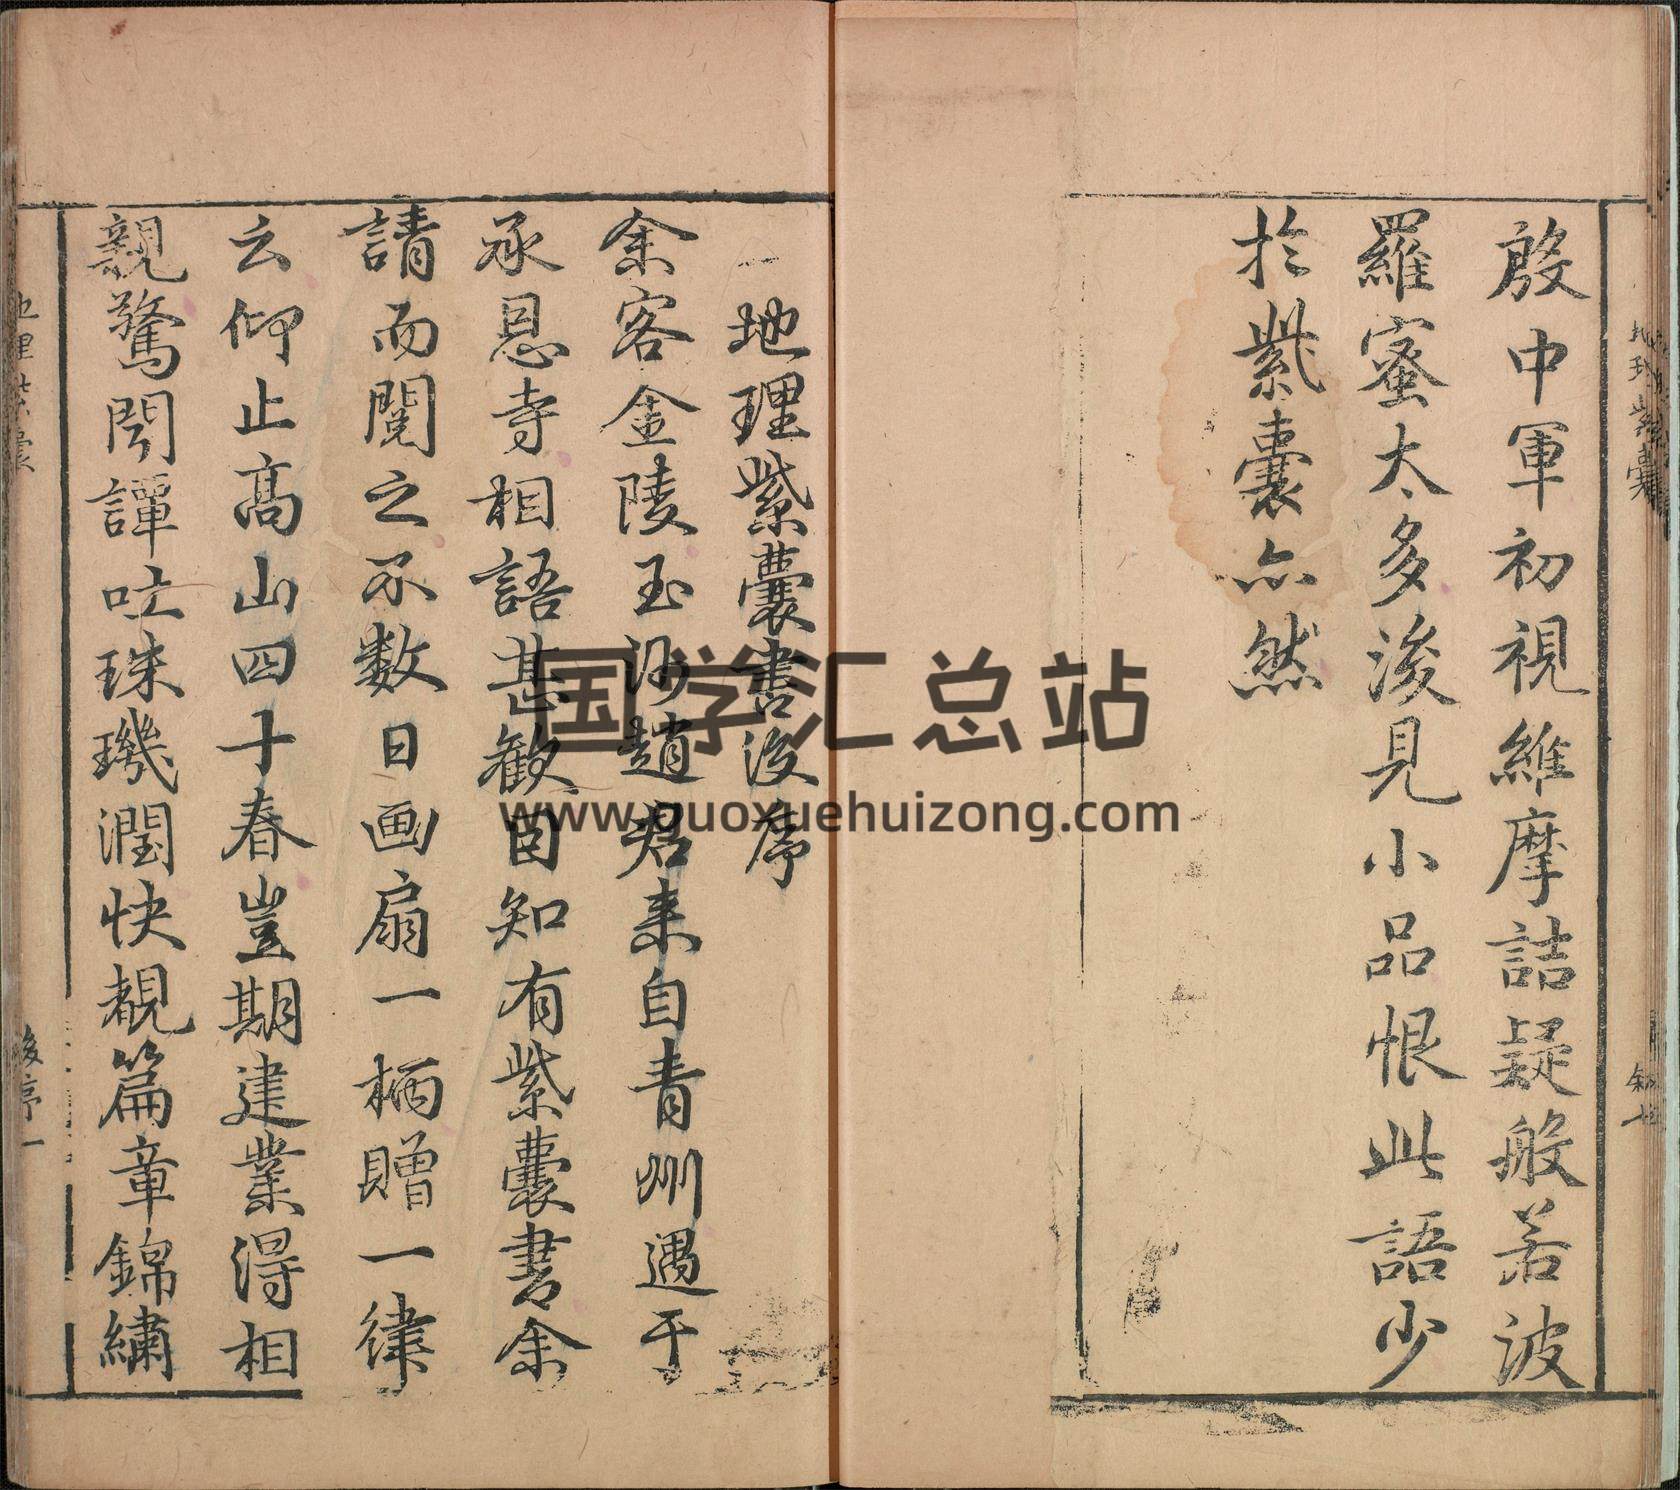 殷中軍初視維摩詰疑般若波
羅蜜太多後見小品恨此語少
於紫囊亦然
地理紫囊書後序
余客金陵玉沙趙君来自青州遇于
承恩寺相語甚歡因知有紫囊書余
請而閱之不數日画扇一柄贈一律
云仰止高山四十春豈期建業得相
親驚閱譚吐珠璣潤快覩篇章錦繡
地理紫囊
後序一
国学汇总站
www.guoxuehuizong.com